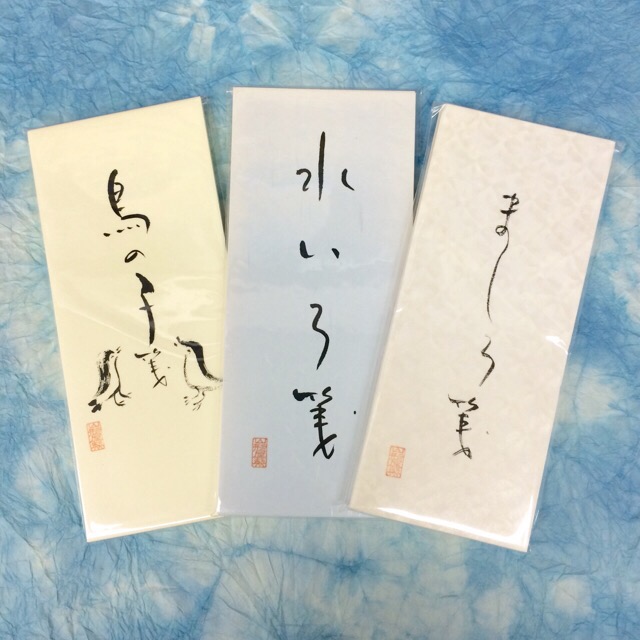 鳥の子箋
水いろ箋
ましろ箋